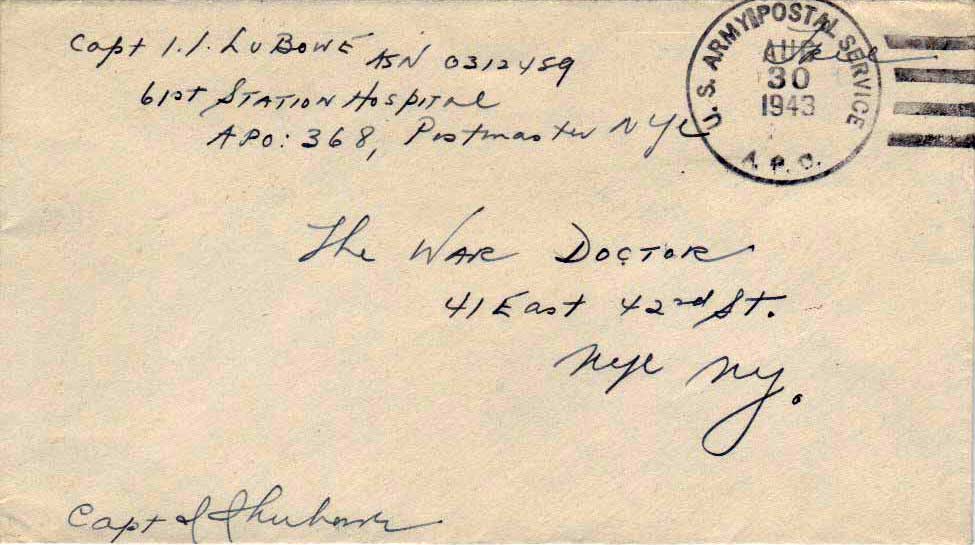 Capt I. I. LuBOWE ASN 0312459
61st STATION HOSPITAL
APO: 368, Postmaster NYC
U. S. ARMY POSTAL SERVICE
AUG
30
1943
A. P. O.
Free
The WAR DOCTOR
41 East 42nd St.
NYC NY.
Capt I I Lubowe